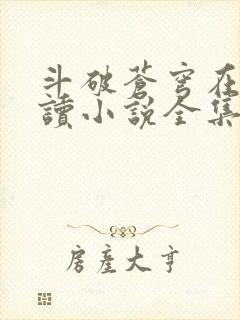 斗破蒼穹在
讀小說全集
房產大亨